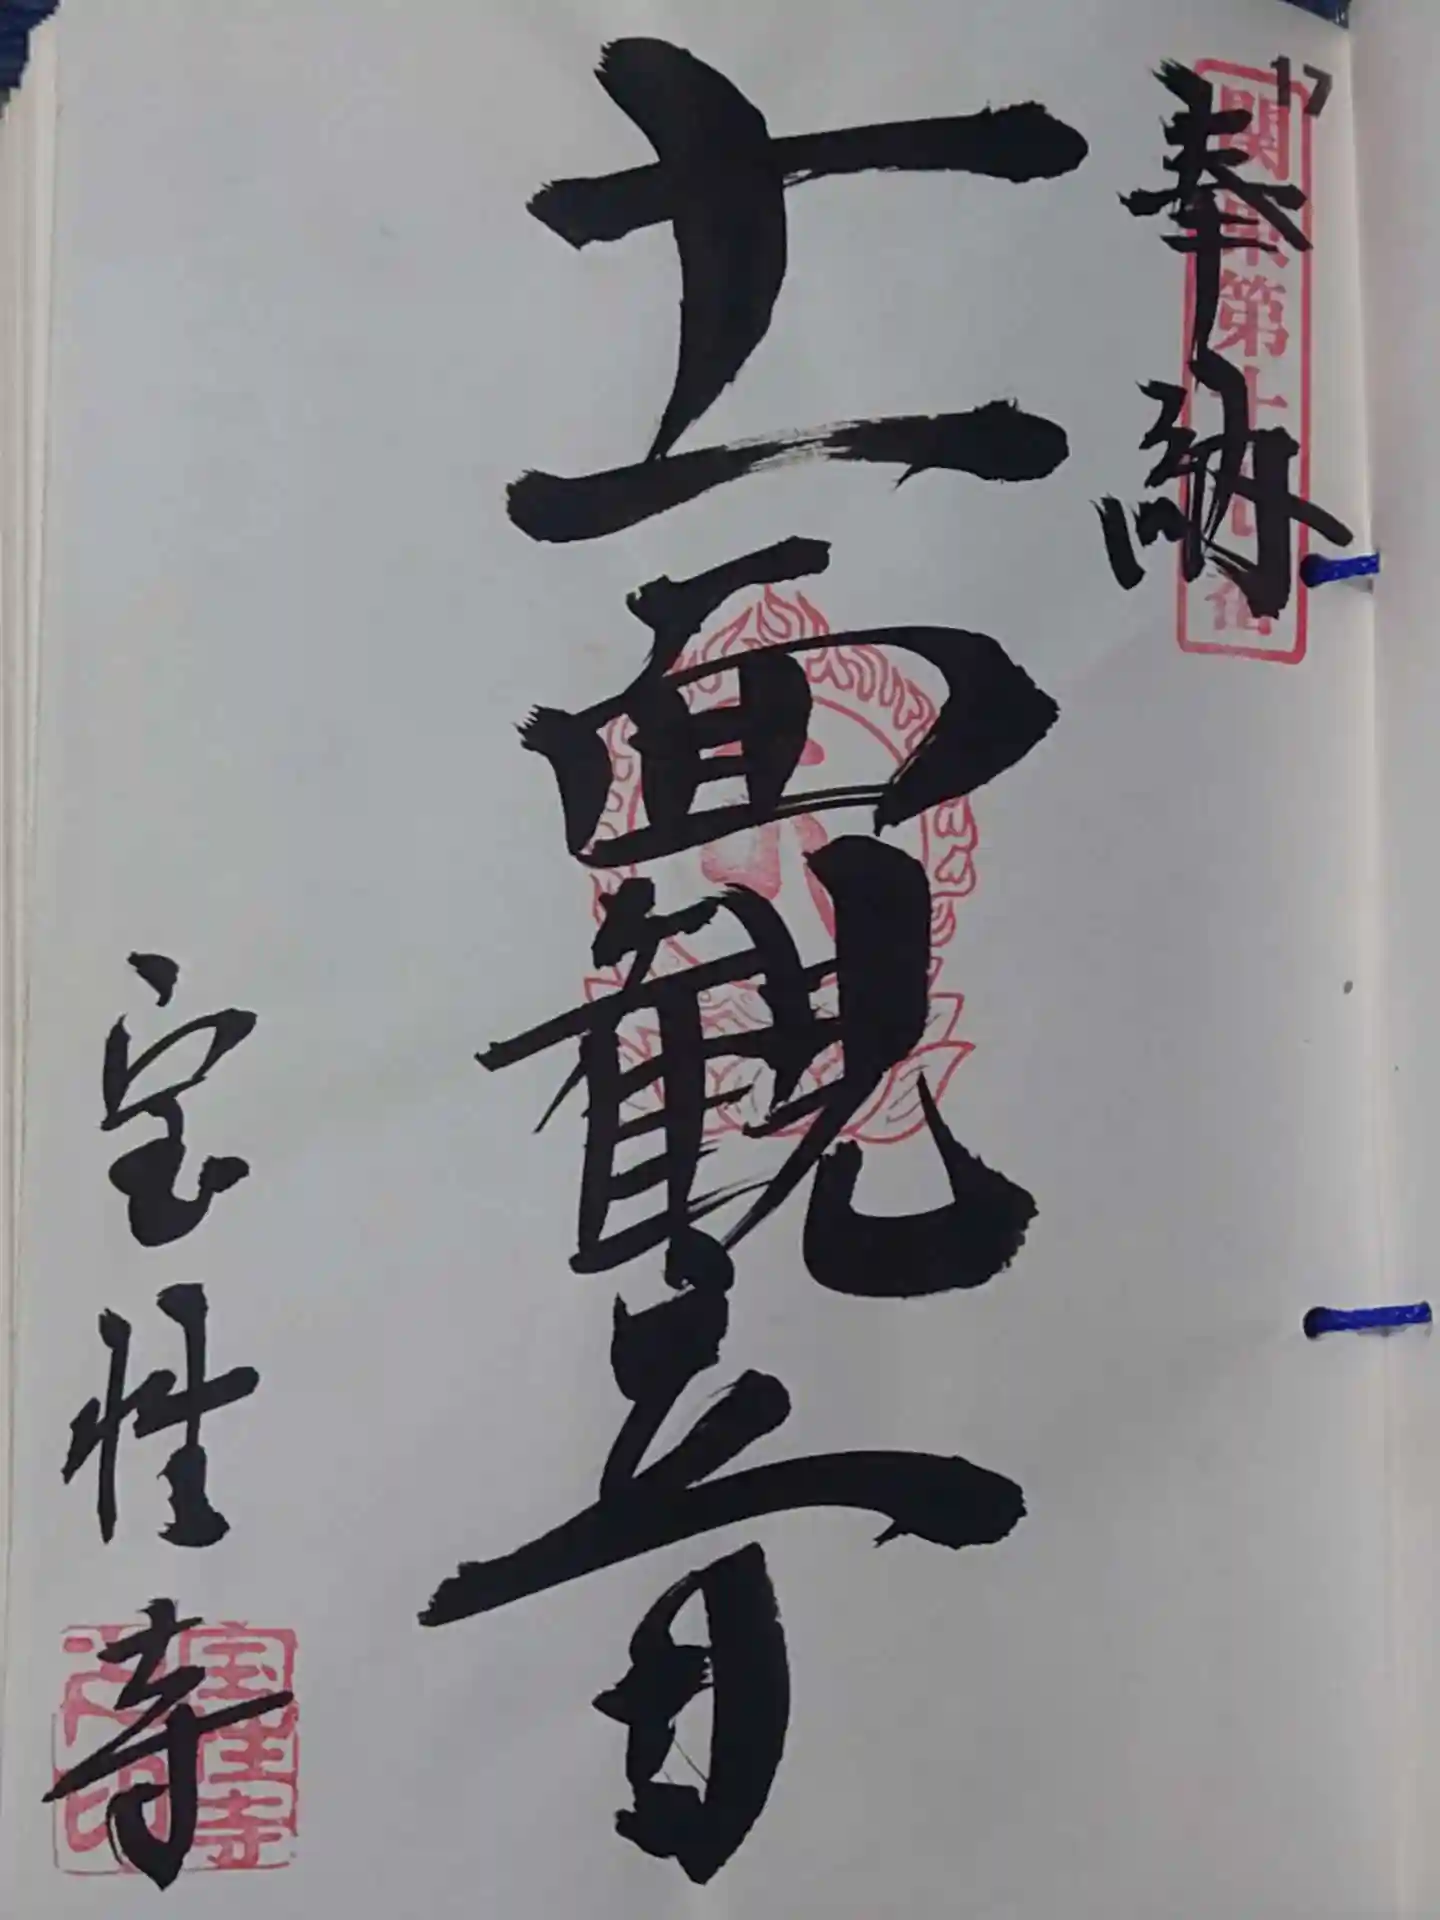 17
奉納
関東第十七番
十一面観音
宝性寺
宝性寺